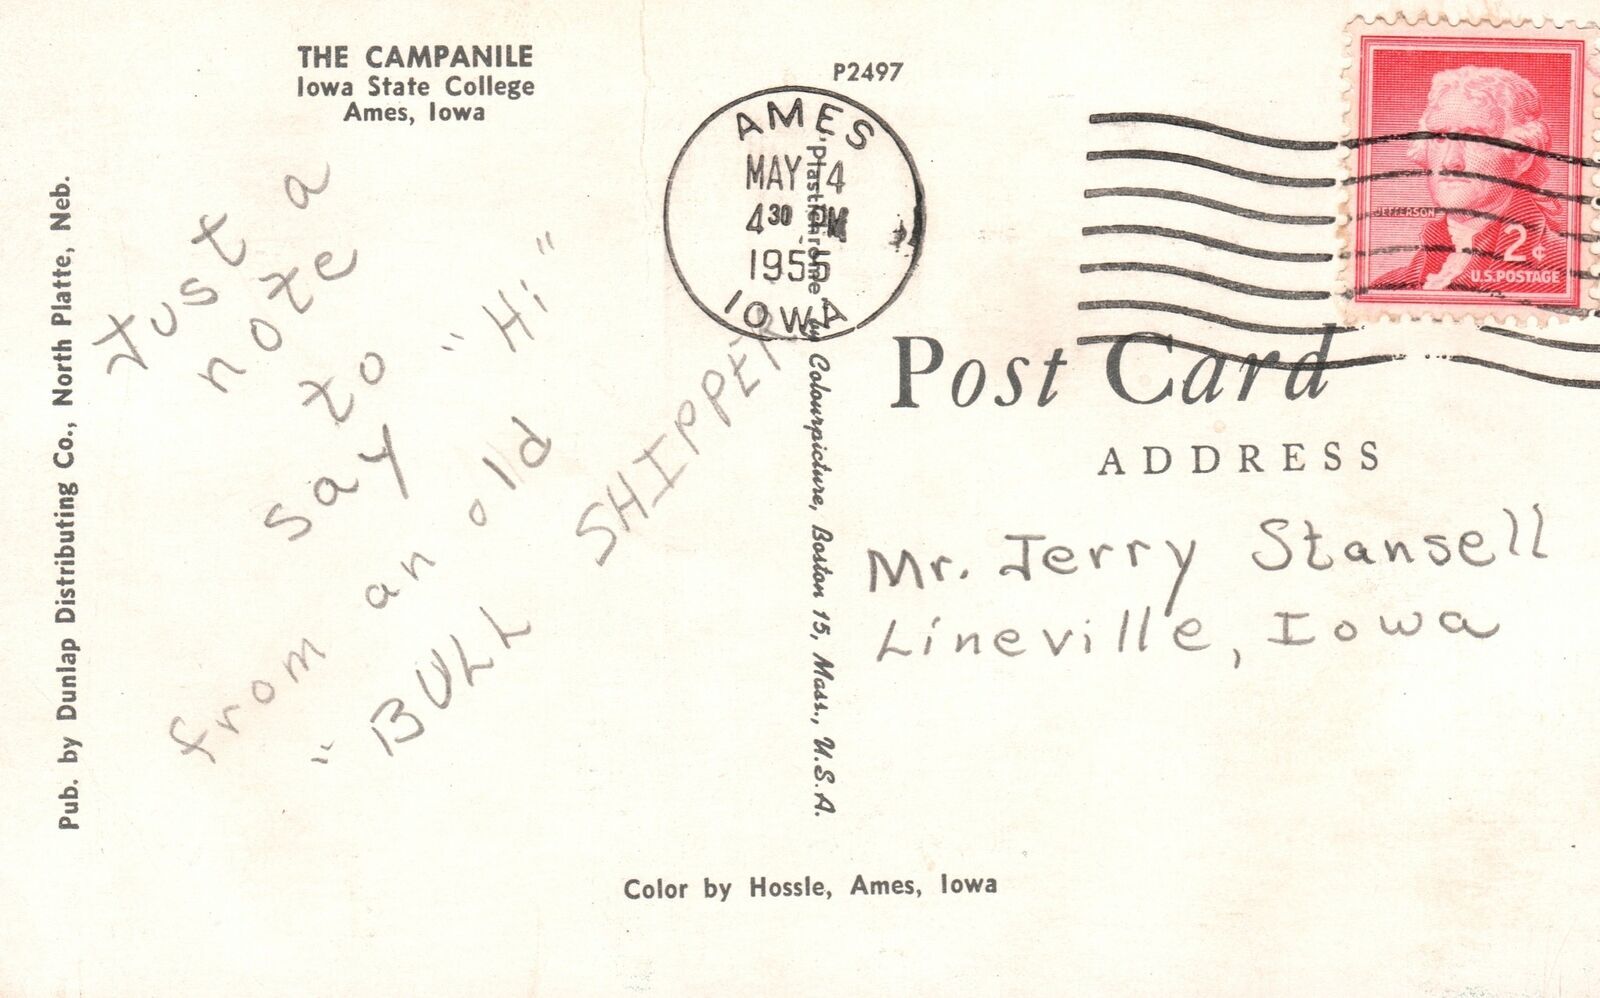 THE CAMPANILE
Iowa State College
Ames, Iowa
P2497
AMES
MAY 14
4 30 PM
1955
IOWA
JEFFERSON
2¢
U.S. POSTAGE
Post Card
ADDRESS
Just a
note
to
say "Hi"
from an old
"BULL SHIPPER
Mr. Jerry Stansell
Lineville, Iowa
Pub. by Dunlap Distributing Co., North Platte, Neb.
Plastichrome by Colourpicture, Boston 15, Mass., U.S.A.
Color by Hossle, Ames, Iowa